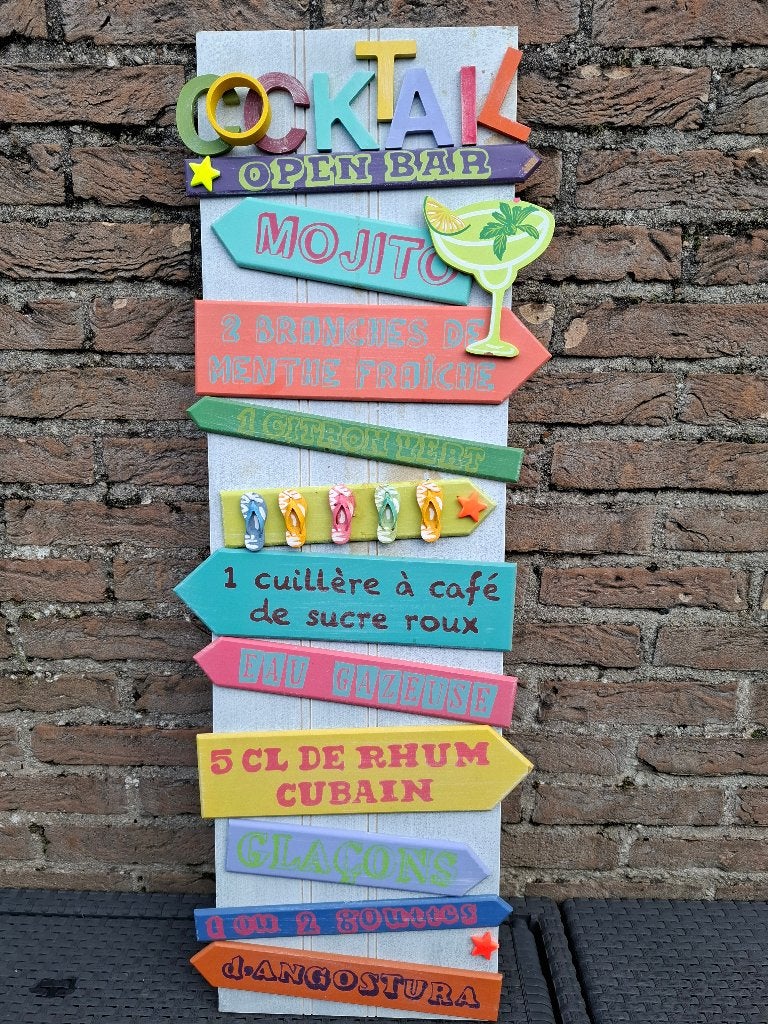 COCKTAIL
OPEN BAR
MOJITO
2 BRANCHES DE
MENTHE FRAÎCHE
1 CITRON VERT
1 cuillère à café
de sucre roux
EAU GAZEUSE
5 CL DE RHUM
CUBAIN
GLAÇONS
1 ou 2 gouttes
d'ANGOSTURA